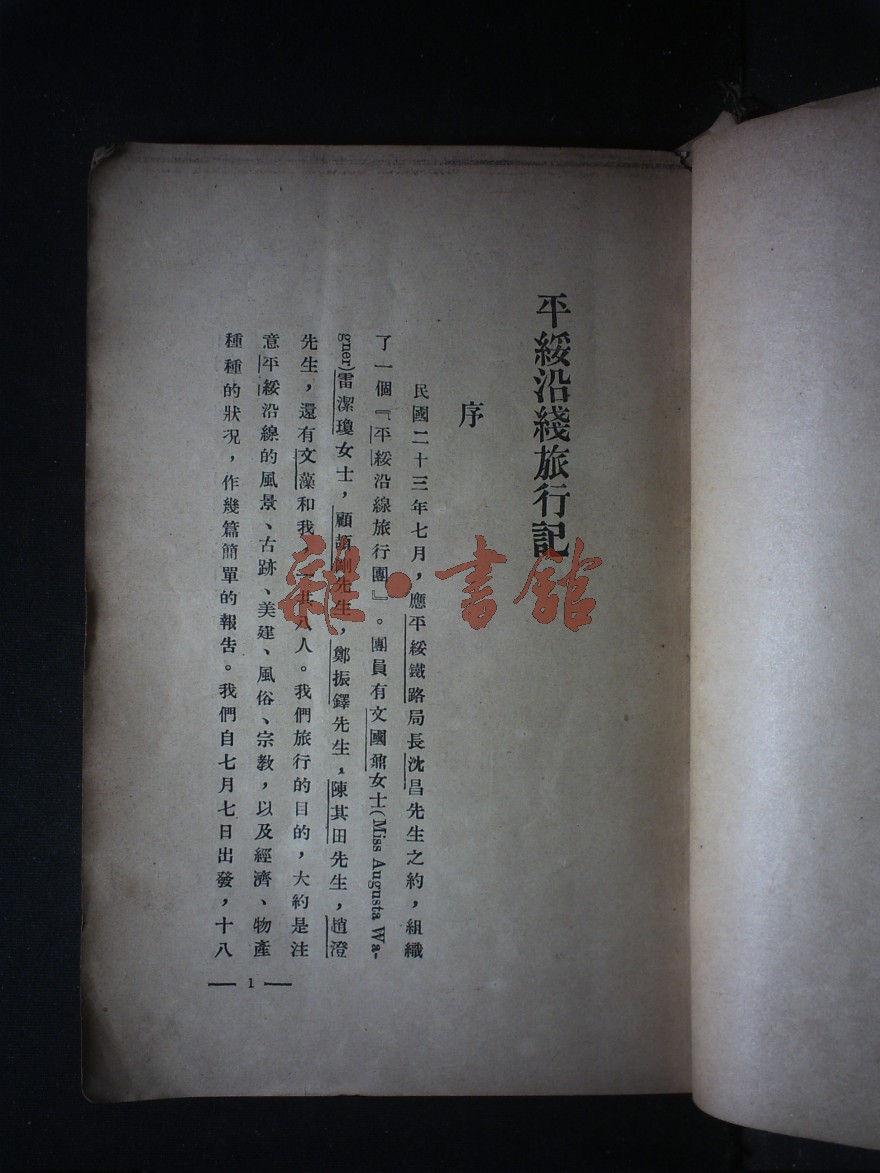 平綏沿綫旅行記
序
民國二十三年七月，應平綏鐵路局長沈昌先生之約，組織
了一個『平綏沿線旅行團』。團員有文國鼐女士(Miss Augusta Wa-
gner)雷潔瓊女士，顧頡剛先生，鄭振鐸先生，陳其田先生，趙澄
先生，還有文藻和我，一共八人。我們旅行的目的，大約是注
意平綏沿線的風景、古跡、美建、風俗、宗教，以及經濟、物產
種種的狀況，作幾篇簡單的報告。我們自七月七日出發，十八
— 1 —
雜·書館